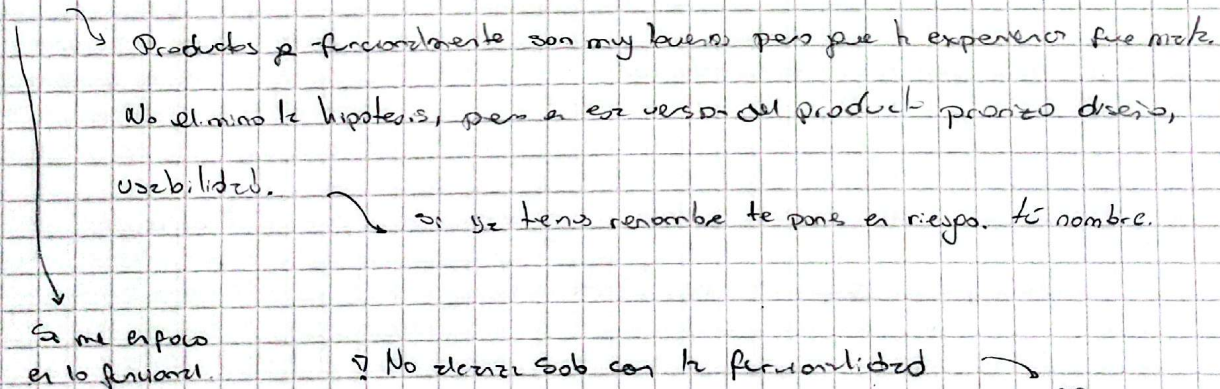 Productos q funcionalmente son muy buenos pero que la experiencia fue mala.
No elimino la hipotesis, pero en esa version del producto priorizo diseño,
usabilidad.
si ya tenes renombre te pone en riesgo. tu nombre.
Si me enfoco
en lo funcional.
No alcanza solo con la funcionalidad